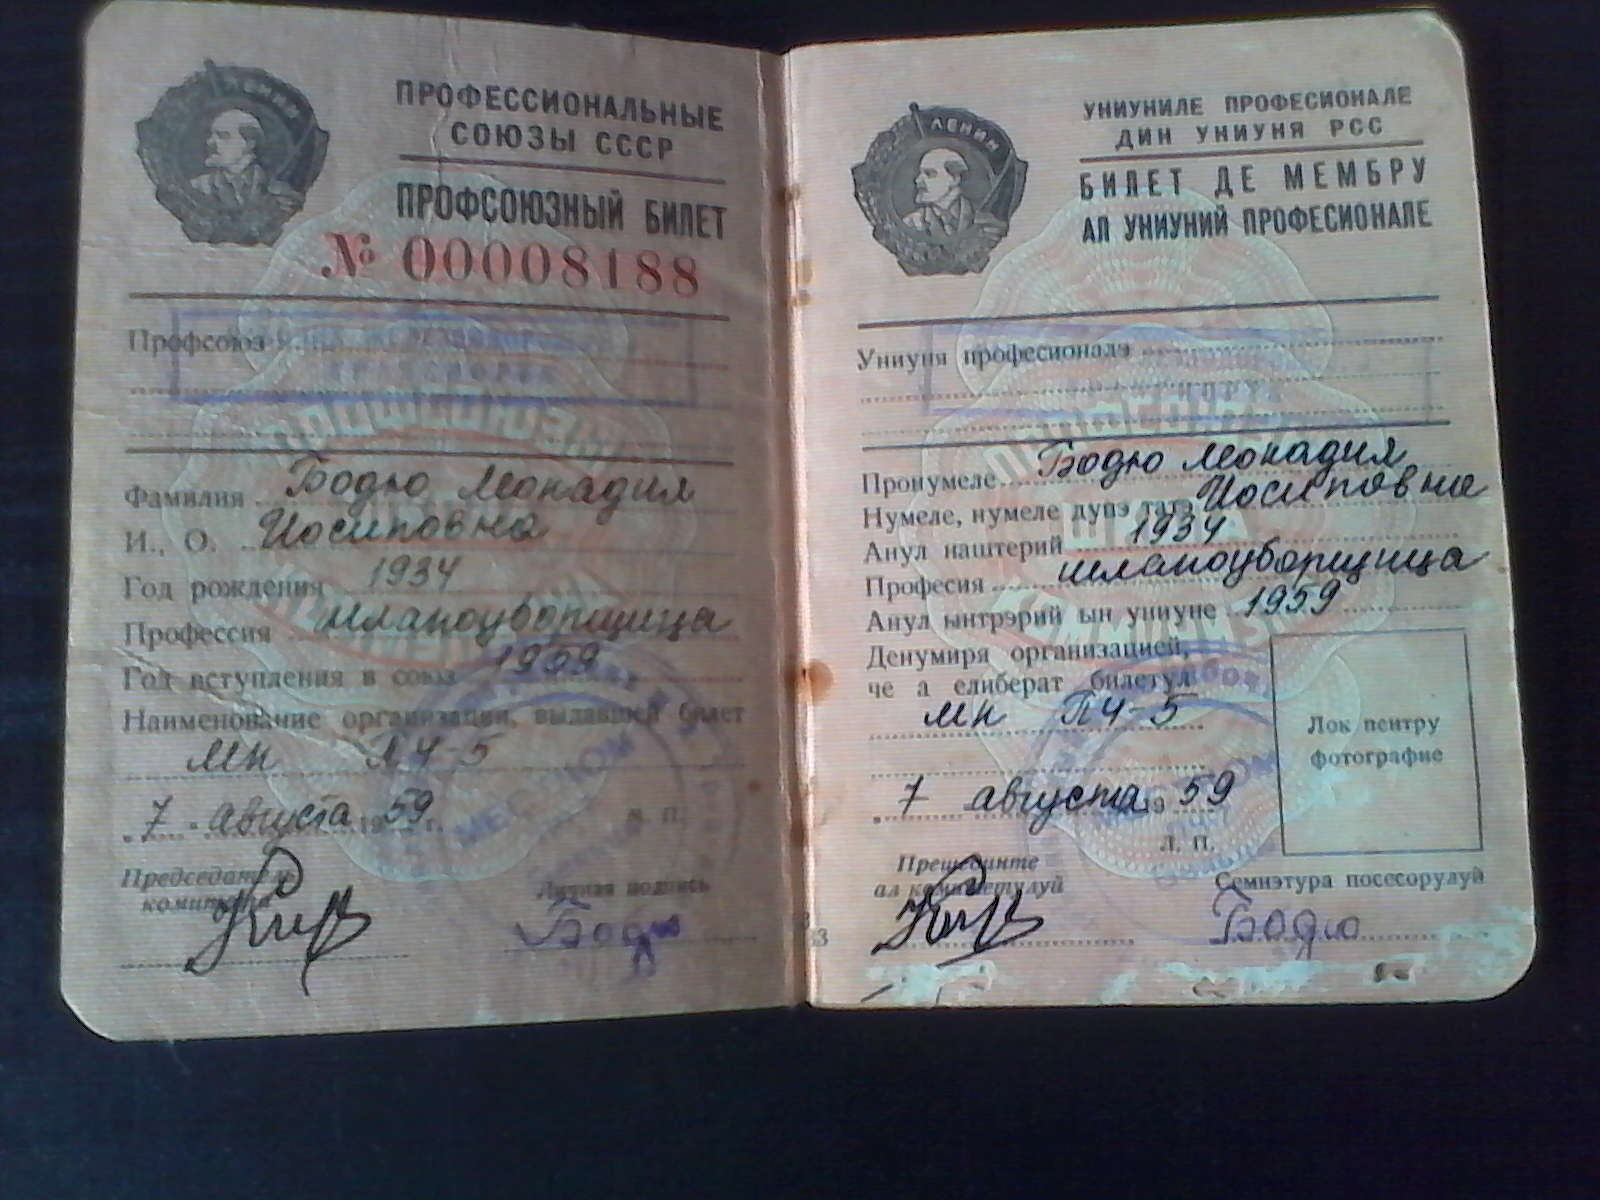 ЛЕНИН
ПРОФЕССИОНАЛЬНЫЕ
СОЮЗЫ СССР
ПРОФСОЮЗНЫЙ БИЛЕТ
№ 00008188
Профсоюз
Фамилия Бодю Леокадия
И., О. Иосиповна
Год рождения 1934
Профессия шлакоуборщица
Год вступления в союз 1959
Наименование организации, выдавшей билет
МК ПЧ-5
"7" августа 1959 г.
М. П.
Председатель
комитета
Личная подпись
Бодю
ЛЕНИН
УНИУНИЛЕ ПРОФЕСИОНАЛЕ
ДИН УНИУНЯ РСС
БИЛЕТ ДЕ МЕМБРУ
АЛ УНИУНИЙ ПРОФЕСИОНАЛЕ
Униуня професионалэ
Пронумеле Бодю Леокадия
Нумеле, нумеле дупэ татэ Иосиповна
Анул наштерий 1934
Професия шлакоуборщица
Анул ынтрэрий ын униуне 1959
Денумиря организацией,
че а елиберат билетул
МК ПЧ-5
"7" августа 1959
Л. П.
Лок пентру
фотографие
Прешединте
ал комитетулуй
Семнэтура посесорулуй
Бодю